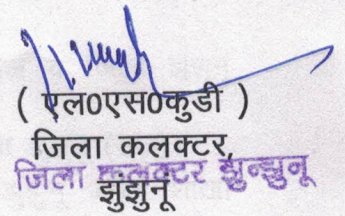 ( एल0एस0कुडी )
जिला कलक्टर,
जिला कलक्टर झुन्झुनू
झुंझुनू